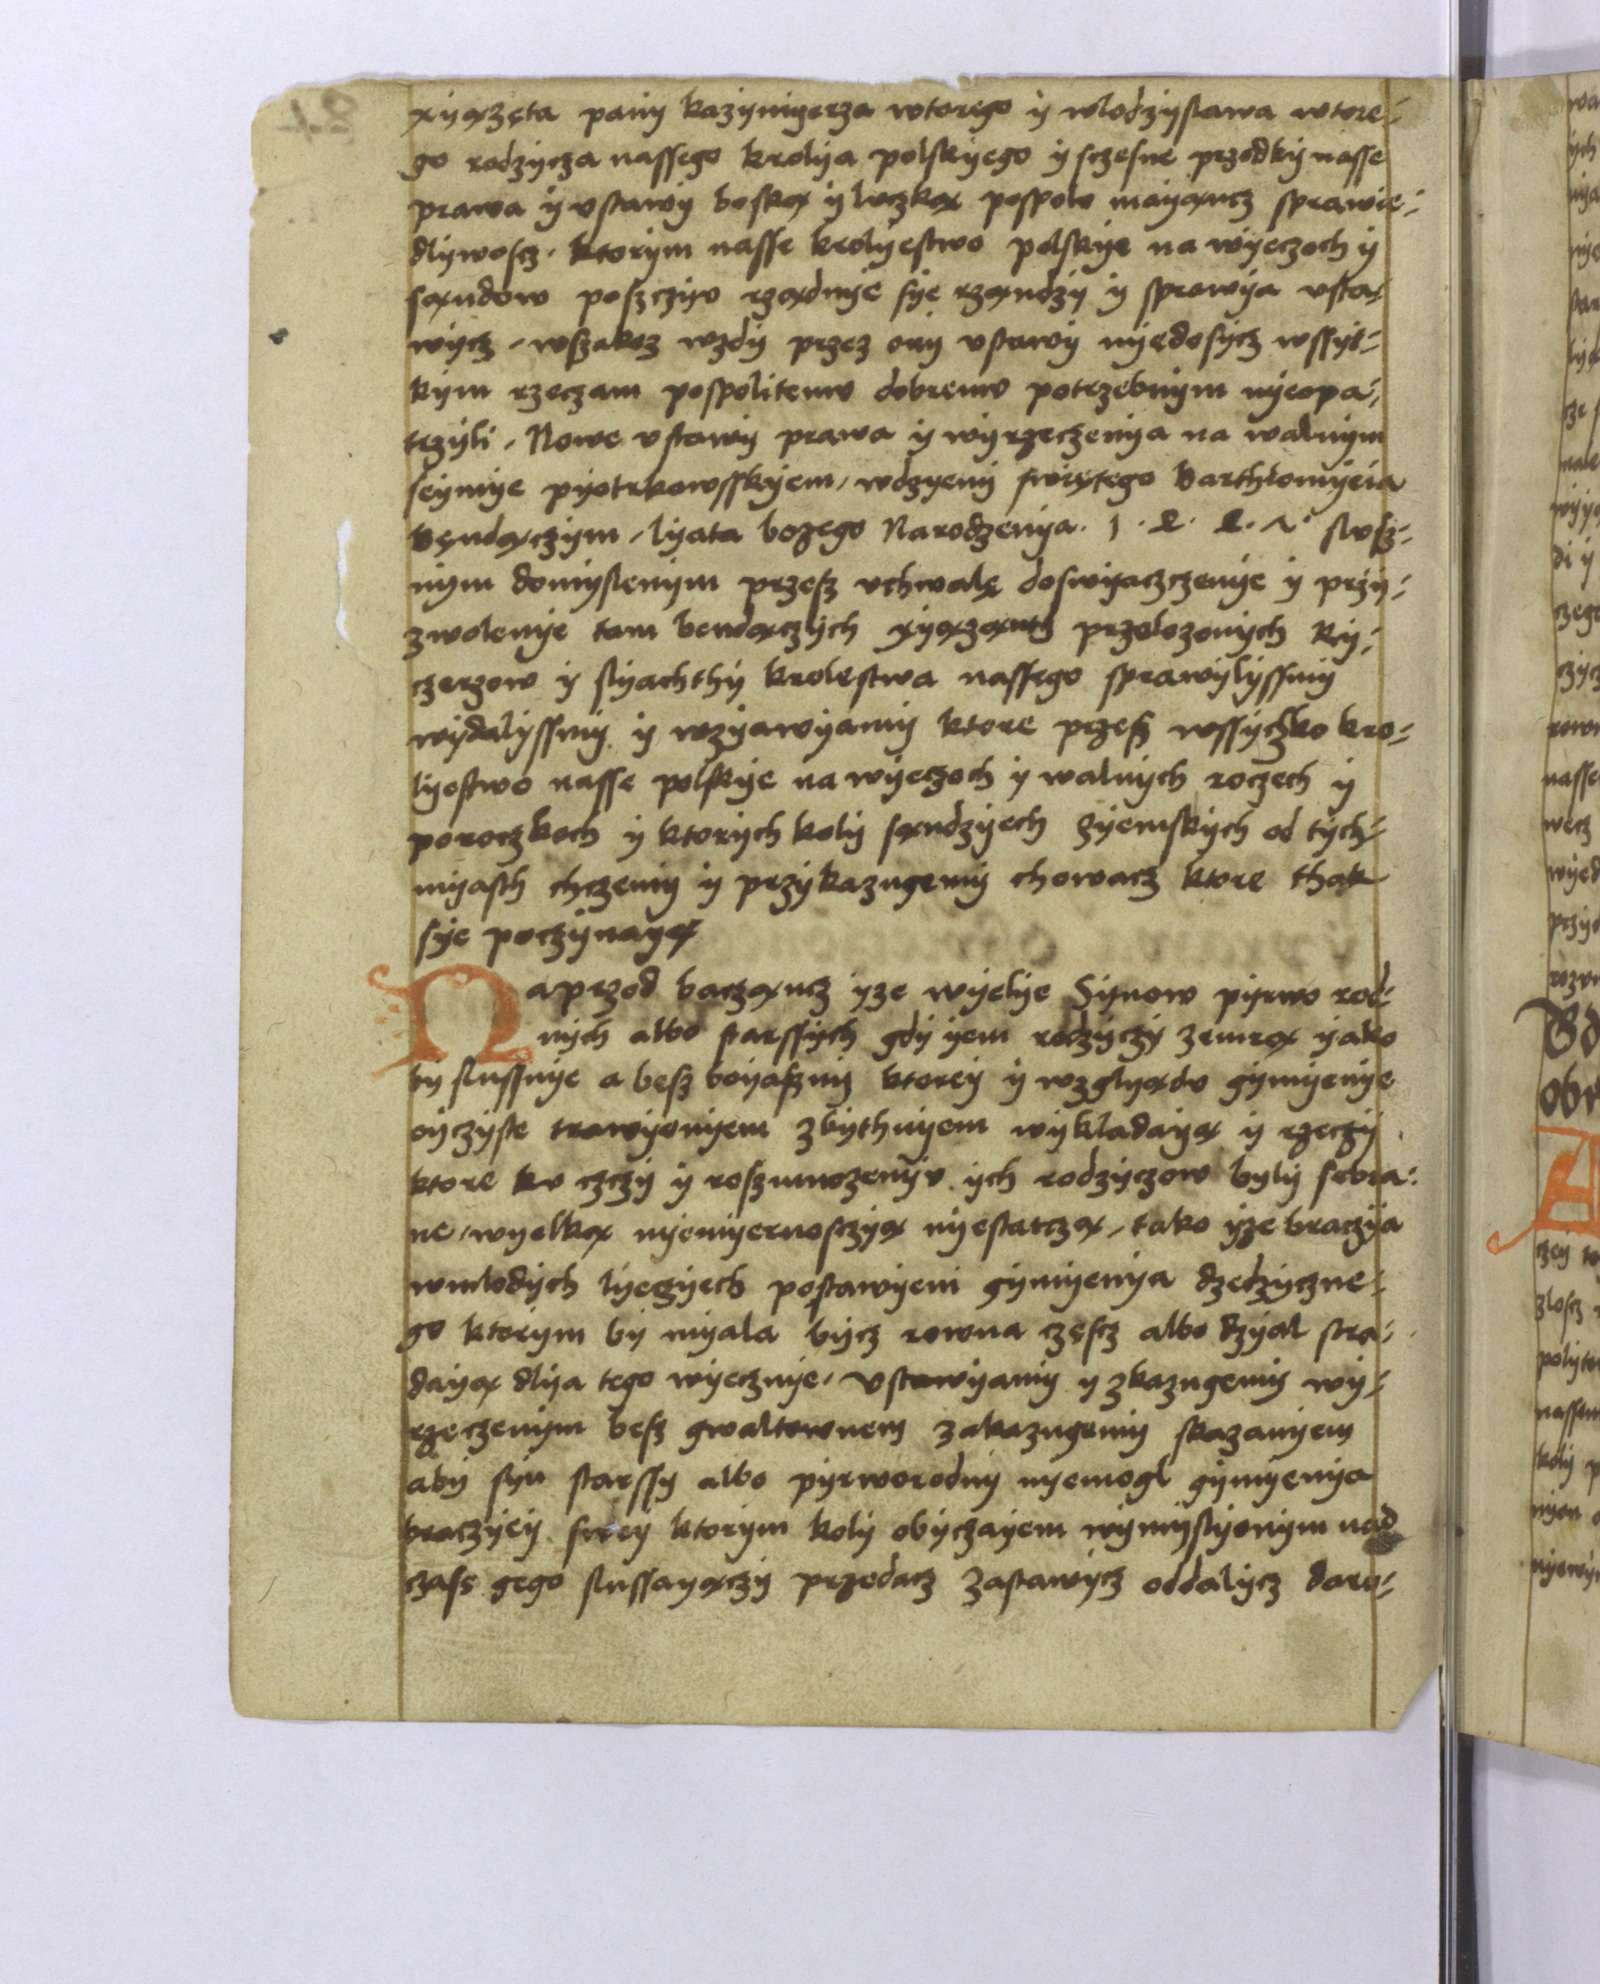 xyązęta pany kazymyerza wtorego ÿ wlodzyslawa wtore-
go rodzycza nassego krolya polskyego ÿ sczesne przodky nasse
prawa ÿ vstawy boską ÿ luczką pospolu mayąncz sprawie-
dlywoscz. ktorym nasse krolyestwo polskye na wyeczoch ÿ
sąndow poszczyo rządnye sye rząndzy ÿ sprawya vsta
wycz. wszakoz wzdy przez ony vstawy nyedosycz wssyt-
kym rzeczam pospolitemv dobremv potrzebnym nyeopa-
trzyli. Nowe vstawy prawa ÿ wyrzeczenya na walnym
seymye pyotrkowsskyem. wdzyeny swiętego barthlomyeia
bęndączym. lyata bozego Narodzenya. 1. 4. 4. 7. slusz-
nym domyslenym przesz vchwalę doswyaczczenye ÿ przy-
zwolenye tam bendączych xyąząnth przelozonych Ry-
czerzow ÿ slyachthy krolestwa nassego sprawylyssmy
wydalyssmy ÿ wzyawyamy ktore przesz wssyczko kro-
lyestwo nasse polskye na wyeczoch ÿ walnych roczech ÿ
poroczkoch ÿ ktorych koly sąndzyech zyemskych od tych-
myasth chczemy ÿ przykazugemy chowacz ktore thak
sye poczynayą
Naprzod bacząncz yze wyelye Synow pyrwo rod-
nych albo starssych gdy yem rodzyczy zemrą yako
by slussnye a besz boyaszny ktorey ÿ wzglyądv gymyenye
oyczyste trawyenyem zbythnyem wykladayą ÿ rzeczy
ktore kv czczy ÿ roszmnozenyv ych rodzyczow były sebra-
ne. wyelką nyemyernosczyą nyestatczą. tako yze braczya
wmlodych lyeczyech postawyeni gymyenya dzedzyczne-
go ktorym by myala bycz rowna częscz albo dzyal stra-
dayą dlya tego wyecznye. vstawyamy ÿ zkazugemy wy-
rzeczenym besz gwaltownem zakazugemy skazanyem
aby syn starssy albo pyrworodny nyemogl gymyenya
braczyey swey ktorym koly obyczayem wymyslyonym nad
czass gego slussayączy przedacz zastawycz oddalycz daro-